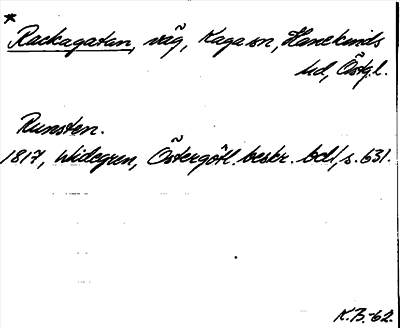 *
Rackagatan, väg, Kaga sn, Hanekinds
hd, Östg.l.
Runsten.
1817, Widegren, Östergötl. beskr. bd 1, s. 631.
K.B.-62.